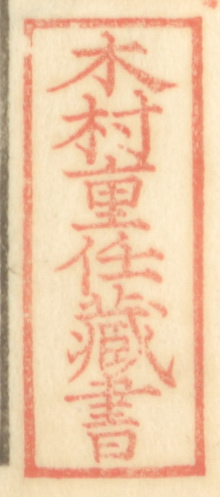 木村重任藏書